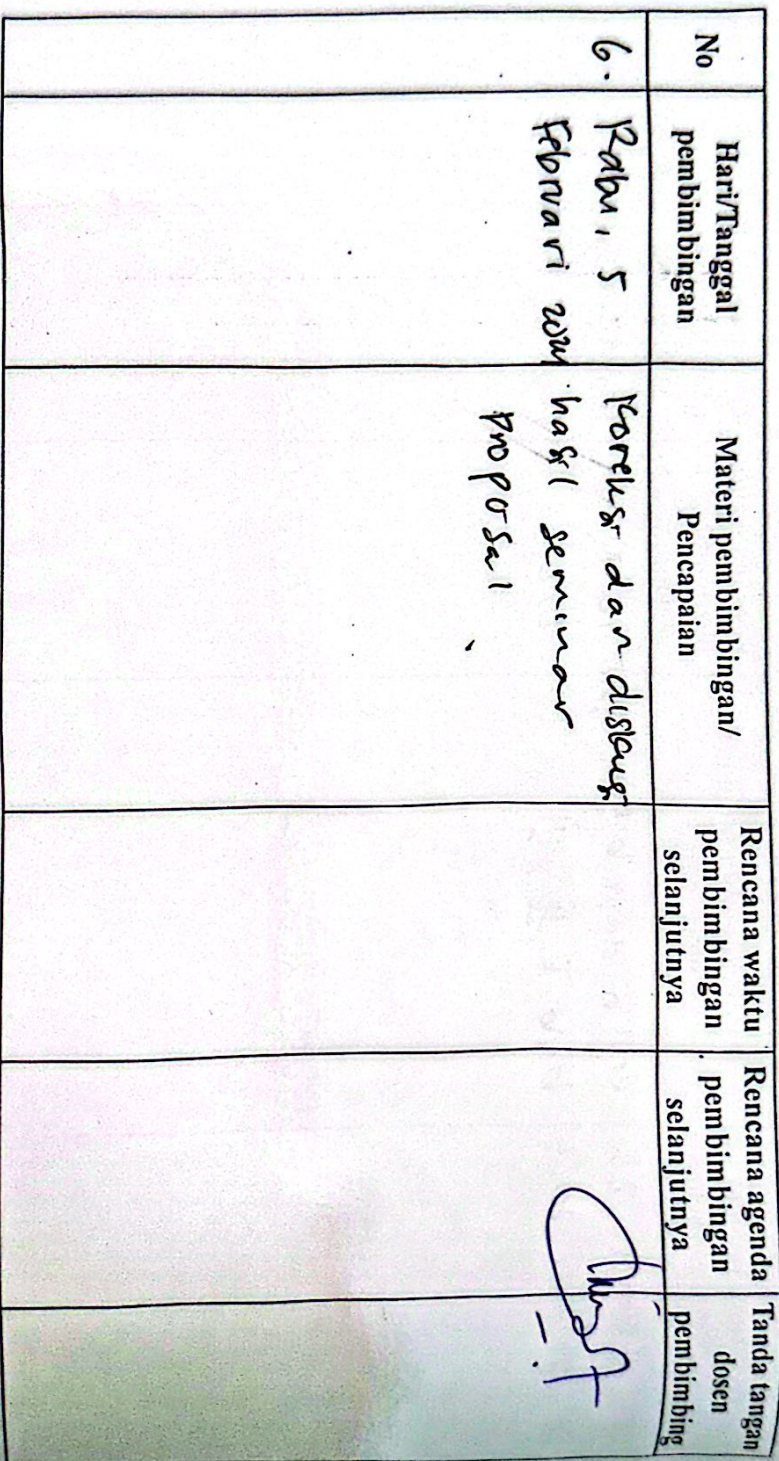 No
Hari/Tanggal
pembimbingan
Materi pembimbingan/
Pencapaian
Rencana waktu
pembimbingan
selanjutnya
Rencana agenda
pembimbingan
selanjutnya
Tanda tangan
dosen
pembimbing
6.
Rabu, 5
Februari
Koreksi dan diskusi
hasil seminar
proposal